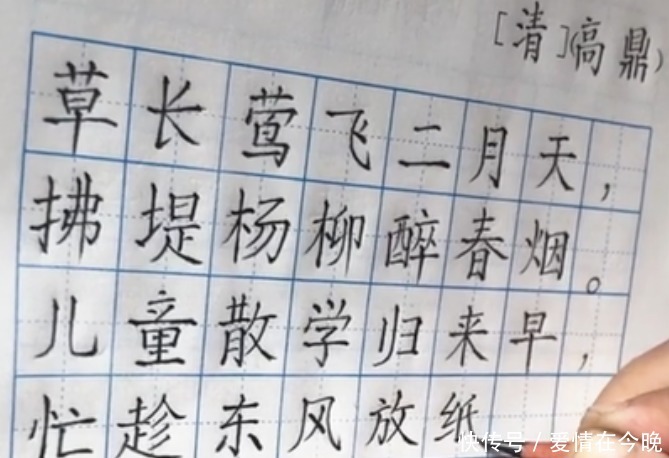 [清](高鼎)
草长莺飞二月天，
拂堤杨柳醉春烟。
儿童散学归来早，
忙趁东风放纸
快传号/爱情在今晚